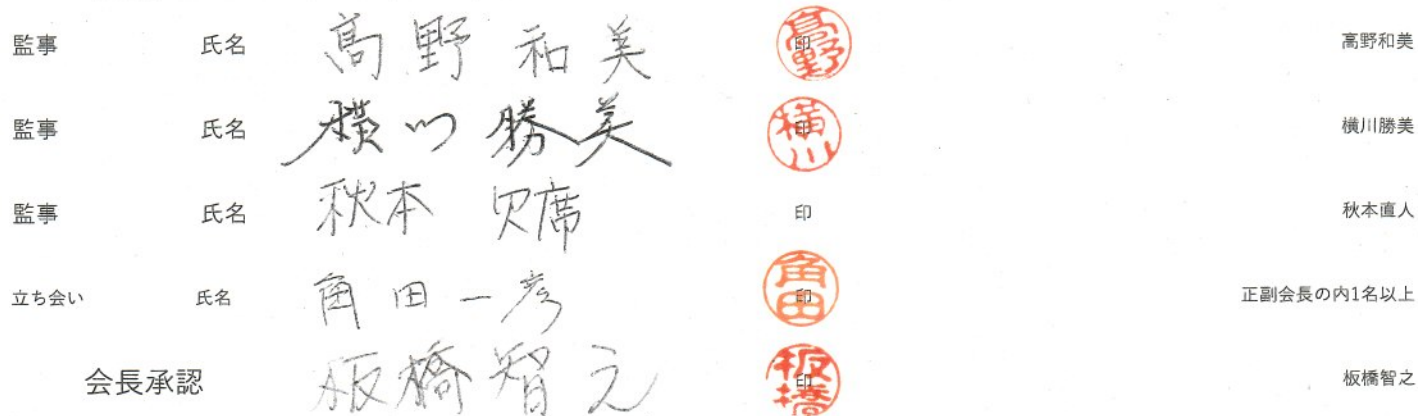 監事 氏名 髙野 和美 印 髙野 高野和美
監事 氏名 横川 勝美 印 横川 横川勝美
監事 氏名 秋本 欠席 印 秋本直人
立ち会い 氏名 角田一彦 印 角田 正副会長の内1名以上
会長承認 板橋智之 印 板橋 板橋智之